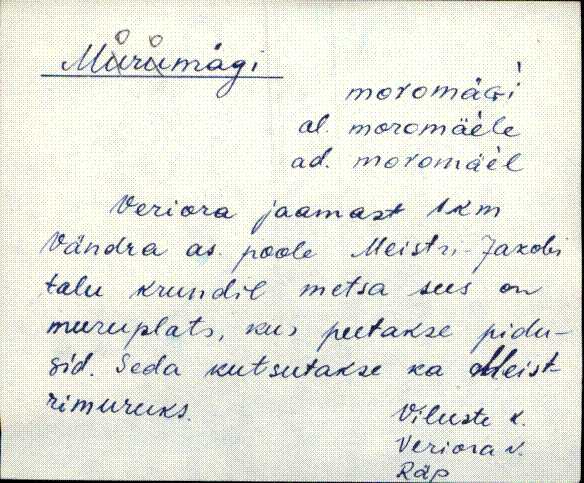 Murumägi
o o
moromäGi
al. moromäele
ad. moromäel
Veriora jaamast 1 km
Vändra as. poole Meistri-Jakobi
talu krundil metsa sees on
muruplats, kus peetakse pidu-
sid. Seda kutsutakse ka Meist-
rimuruks.
Viluste k.
Veriora v.
Räp